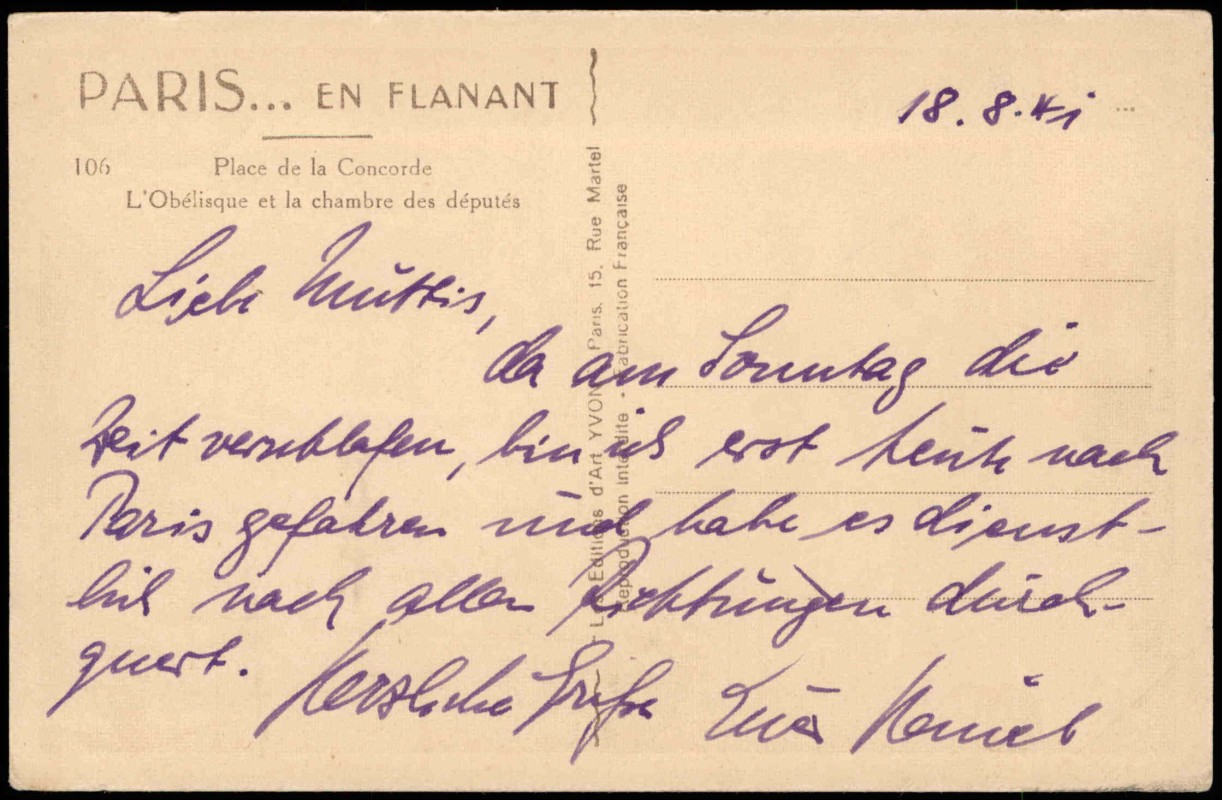 PARIS... EN FLANANT
106 Place de la Concorde
L'Obélisque et la chambre des députés
Les Editions d'Art YVON, Paris, 15, Rue Martel
Reproduction Interdite - Fabrication Française
18. 8. 41
Liebe Muttis,
da am Sonntag die
Zeit verschlafen, bin ich erst heute nach
Paris gefahren und habe es dienst-
lich nach allen Richtungen durch-
quert.
Herzliche Grüße Euer